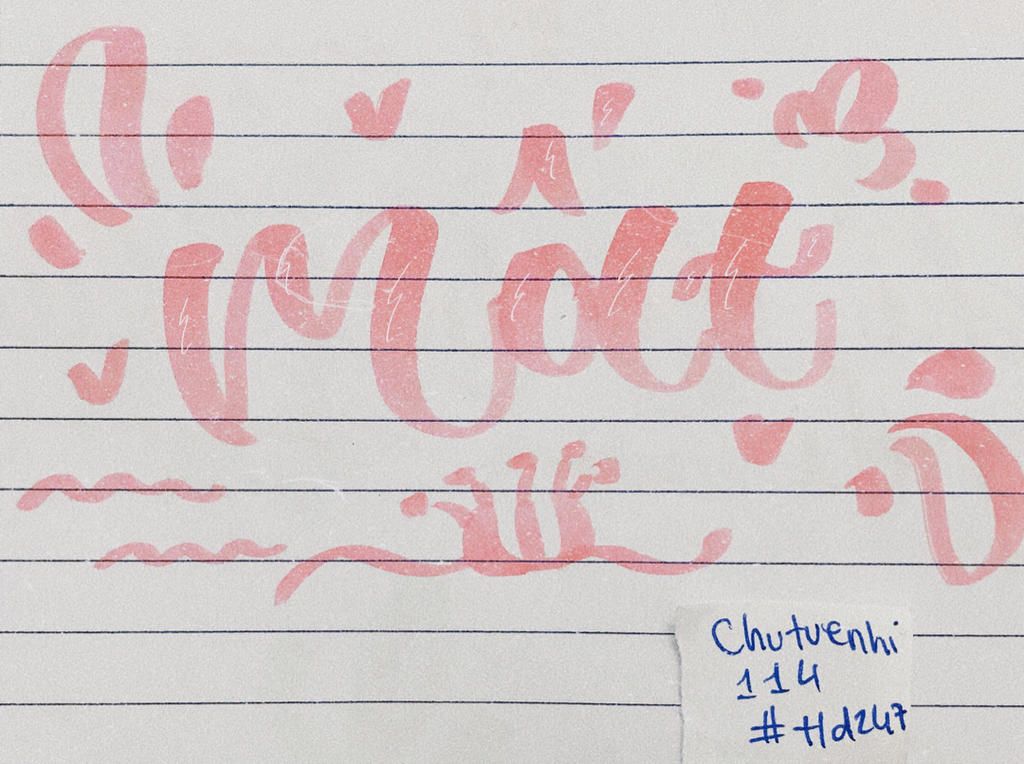 Mất
Chutuenhi
114
#Hd247